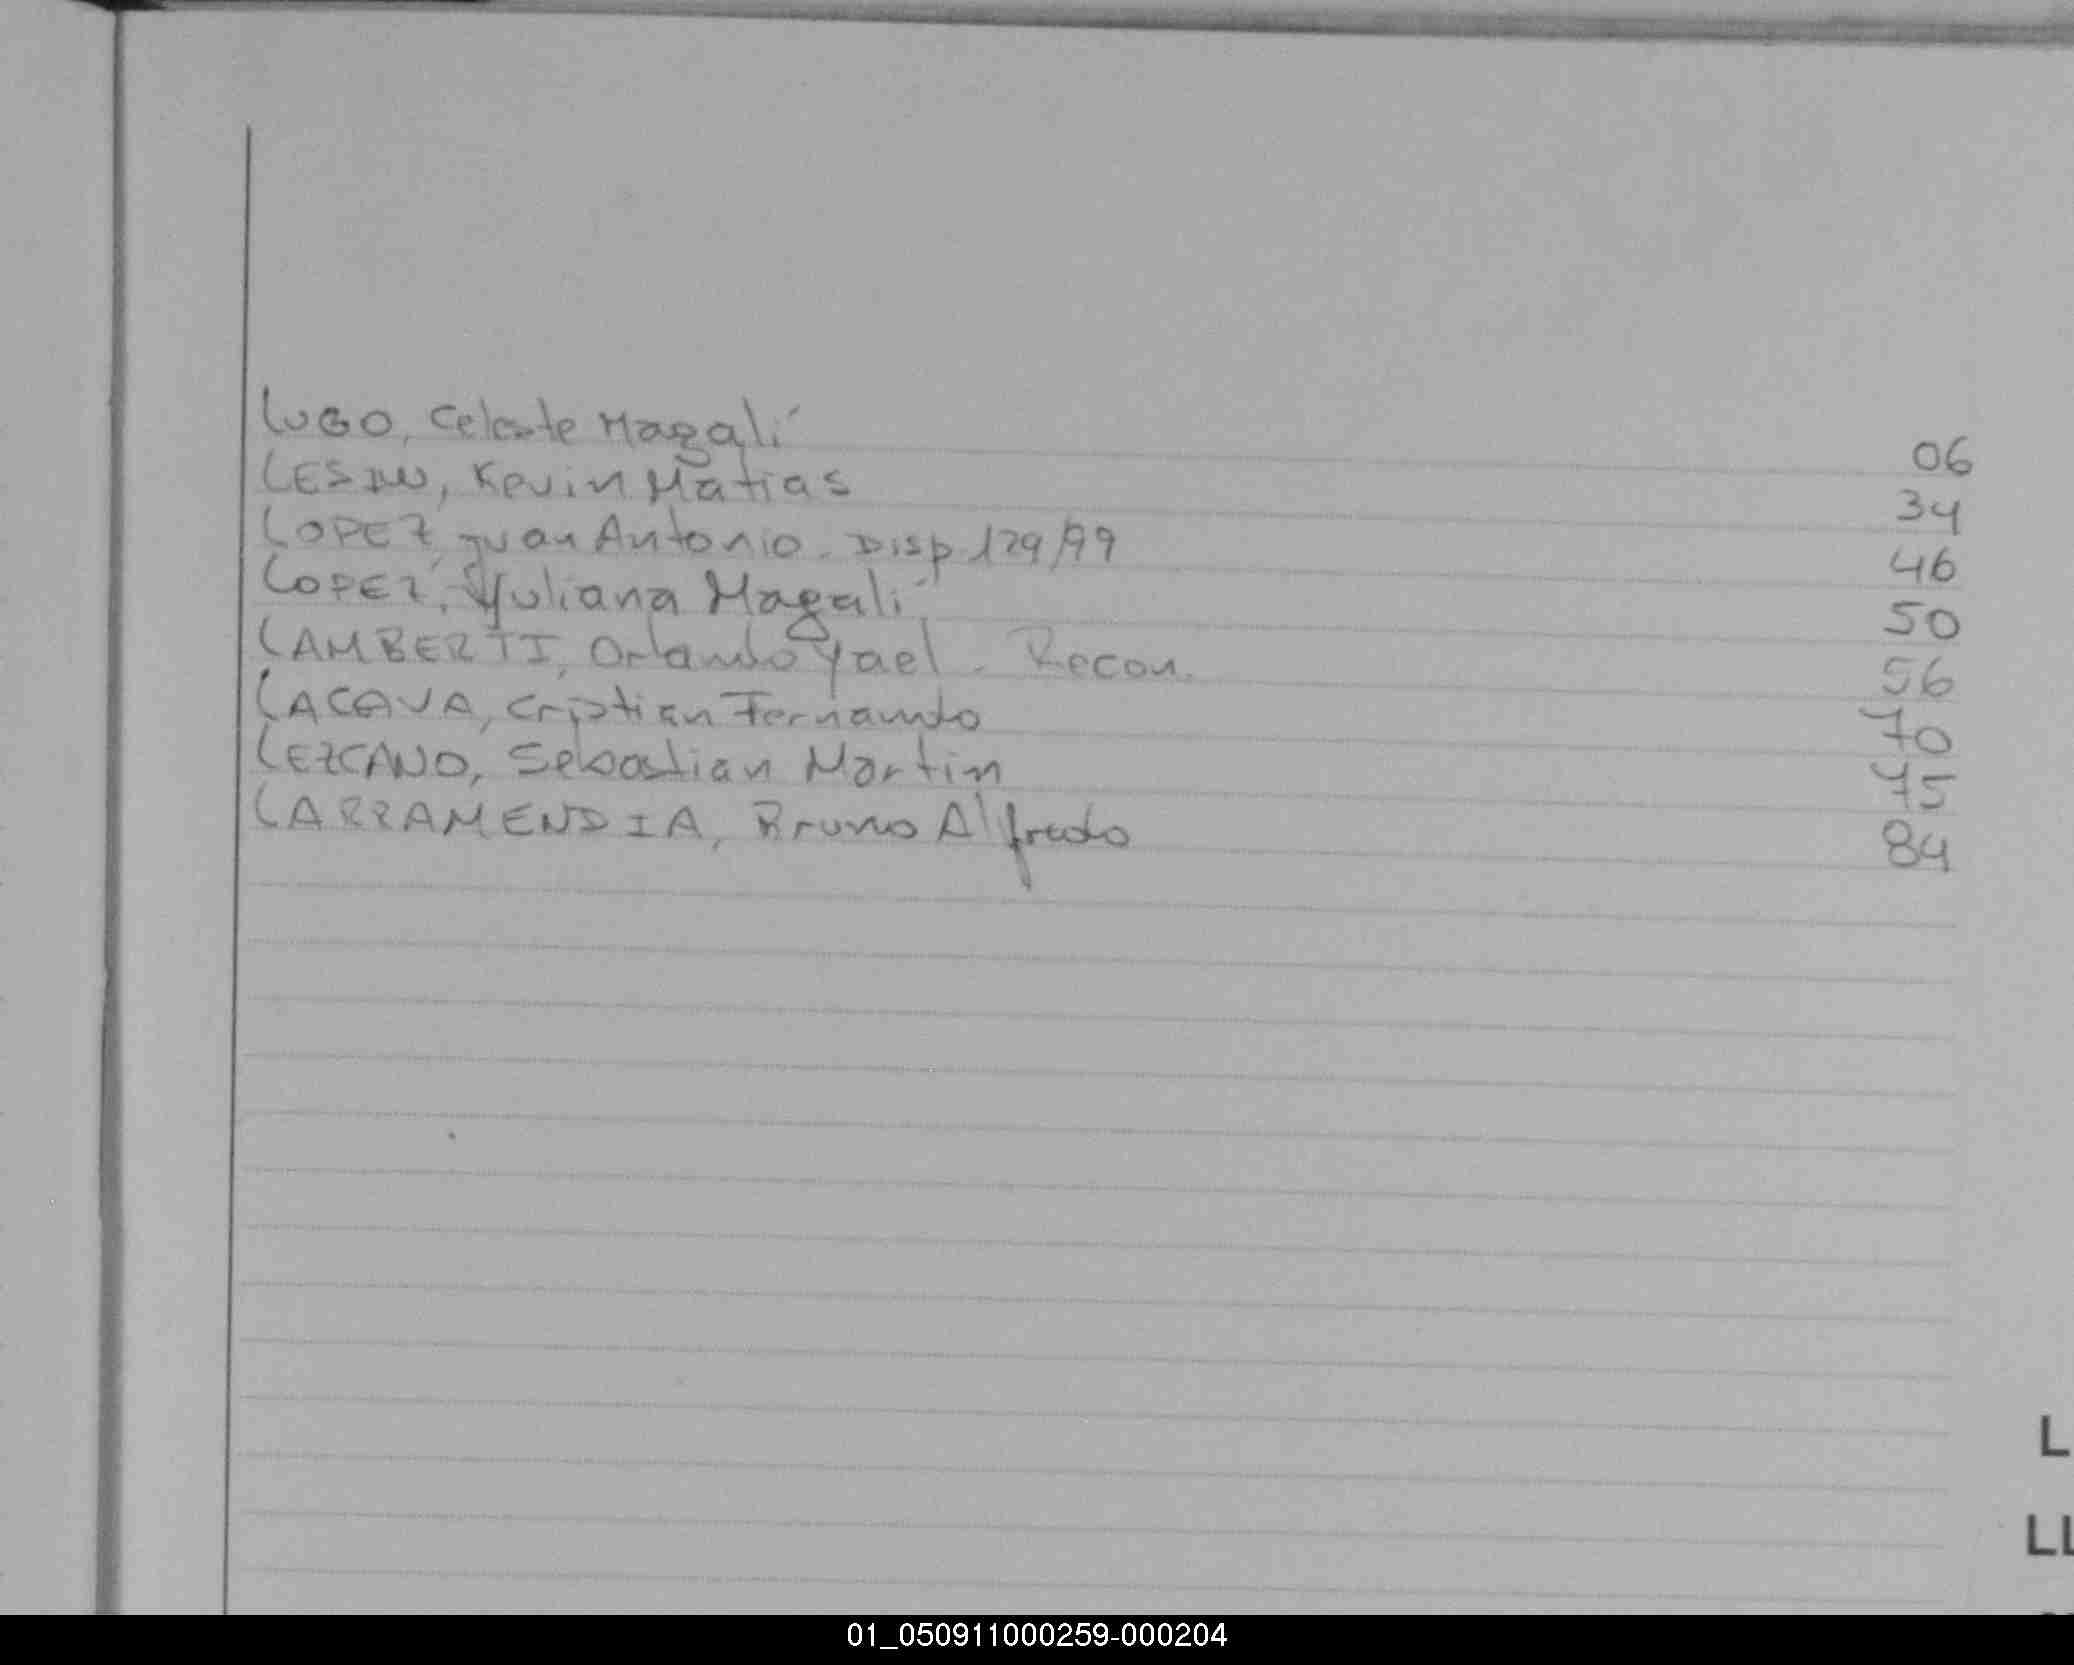 LUGO, Celeste Magalí 06
Kevin Matias 34
LOPEZ, Juan Antonio. Disp 129/99 46
LOPEZ, Yuliana Magalí 50
LAMBERTI, Orlando Yael - Recon. 56
LACAVA, Cristian Fernando 70
LEZCANO, Sebastian Martin 75
LARRAMENDIA, Bruno Alfredo 84
L
LL
01_050911000259-000204